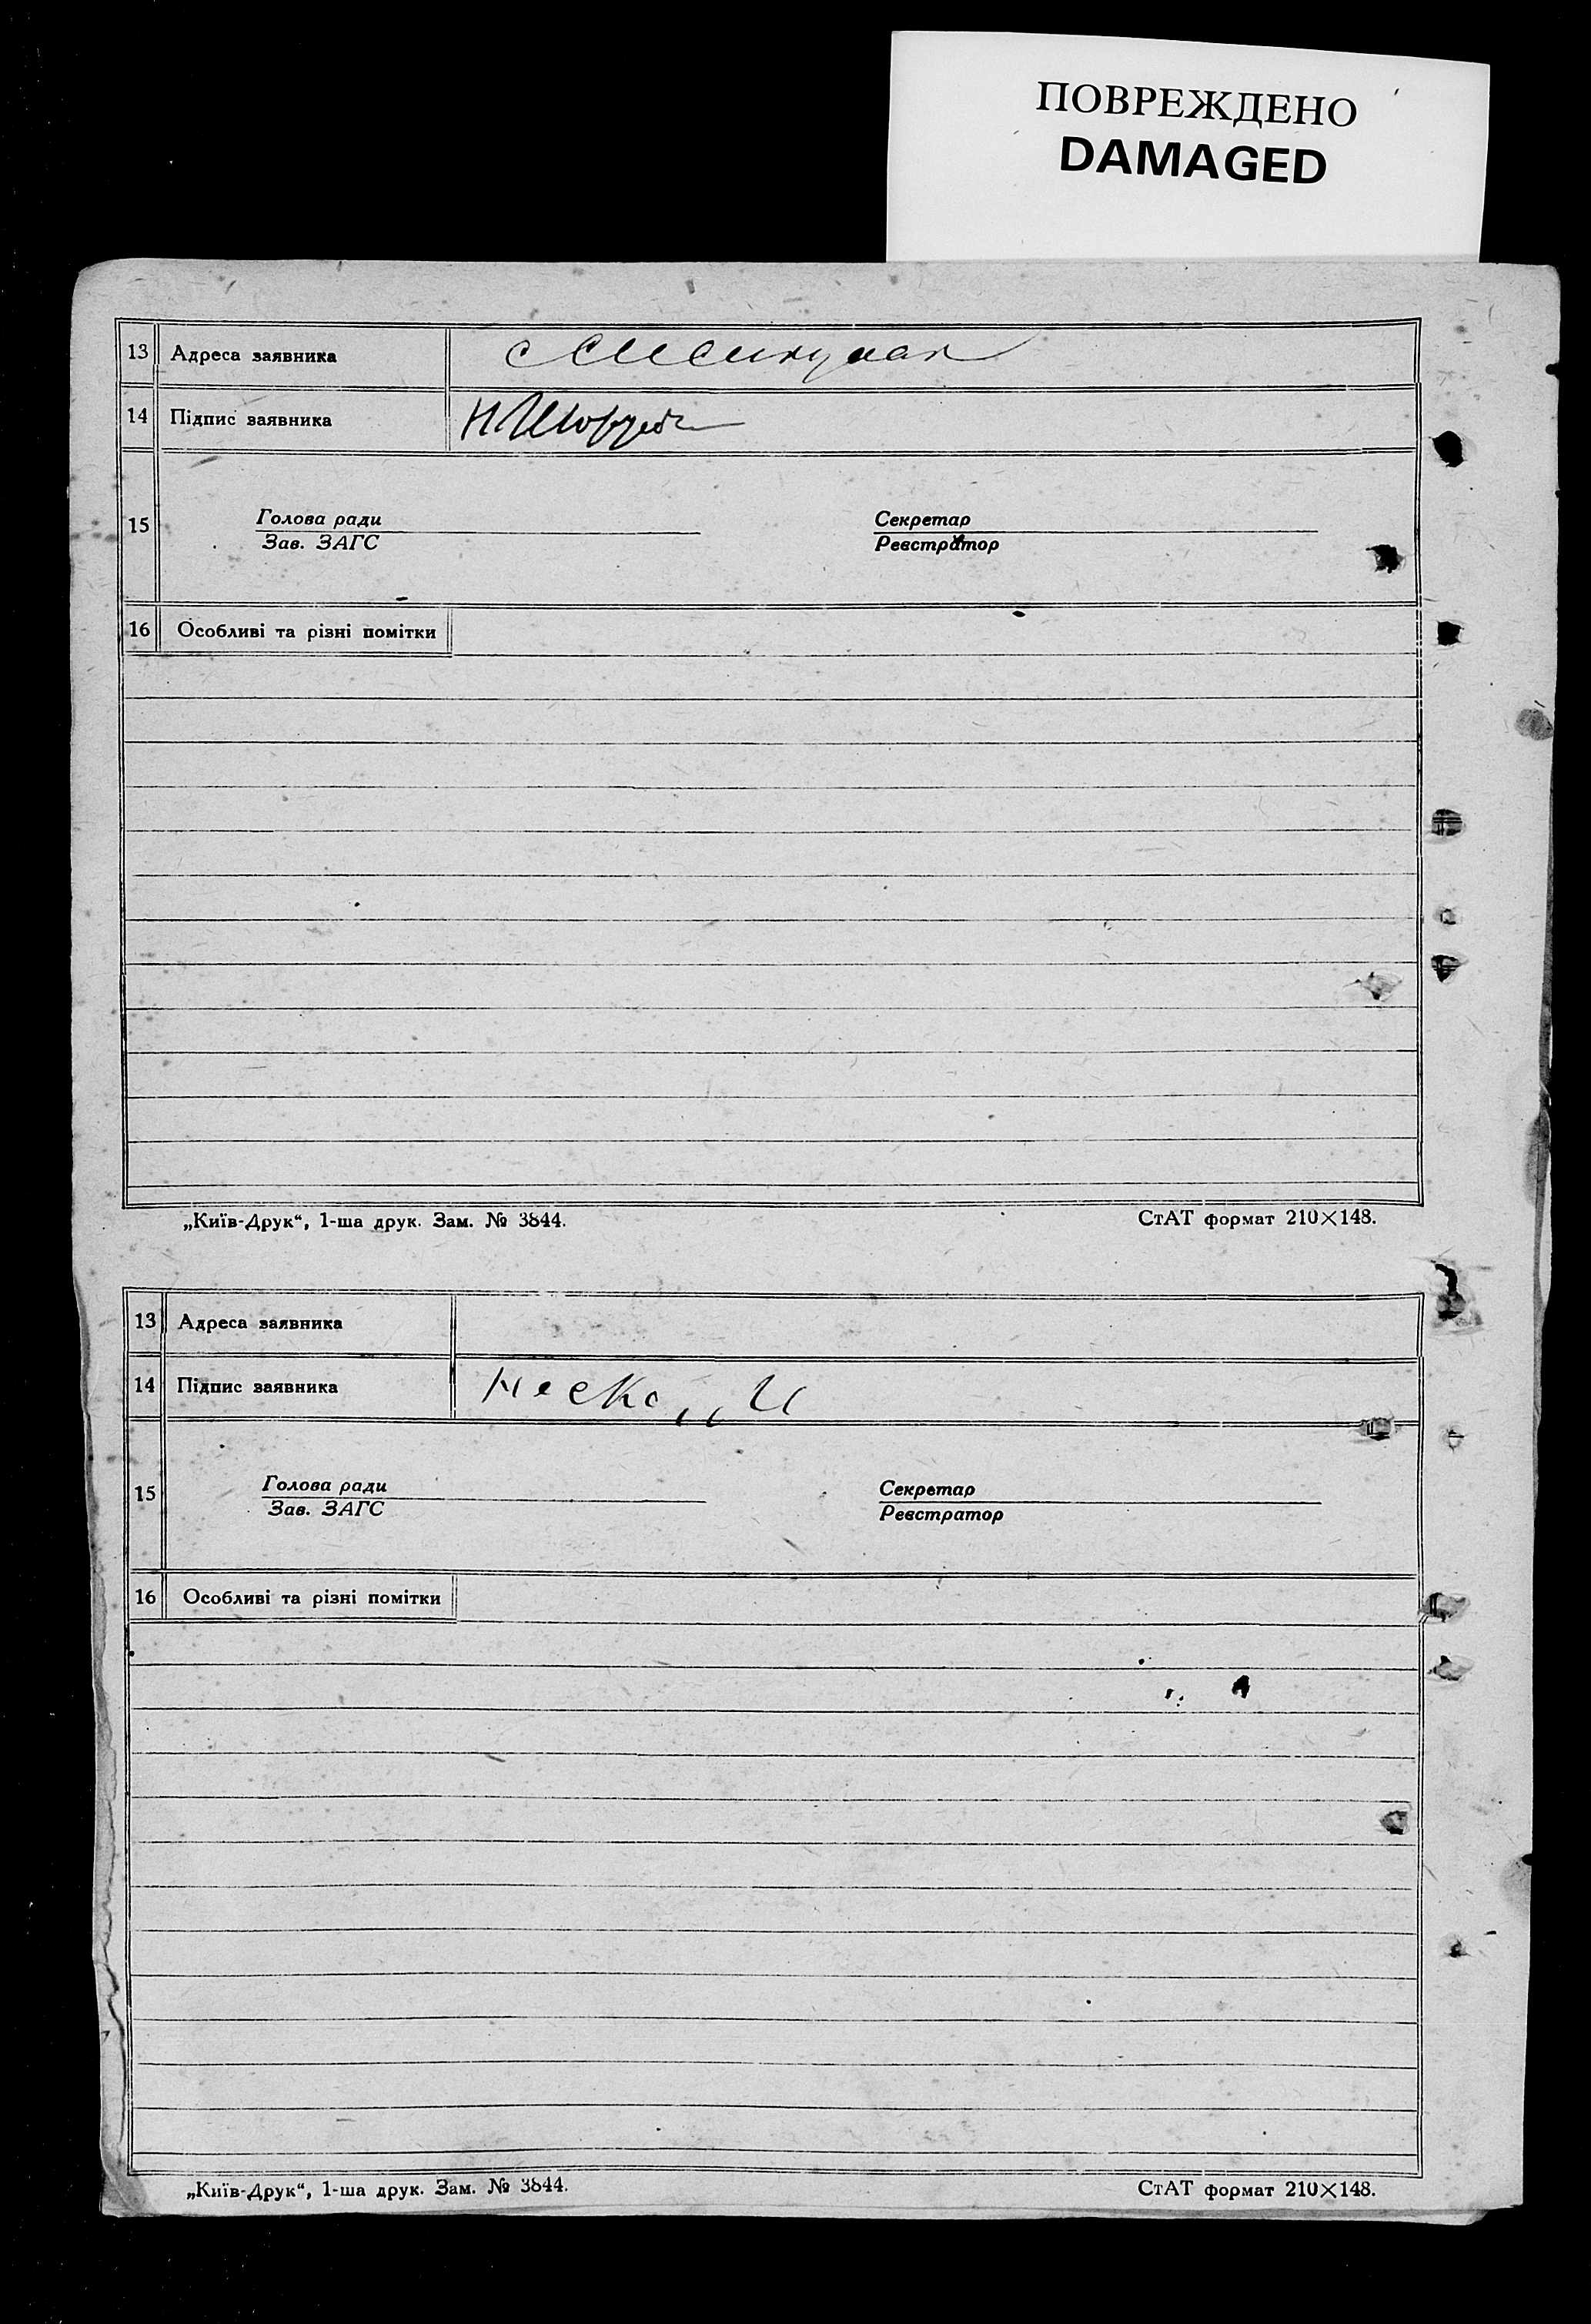 ПОВРЕЖДЕНО
DAMAGED
13 Адреса заявника с
14 Підпис заявника
15 Голова ради Секретар
Зав. ЗАГС Реєстратор
16 Особливі та різні помітки
„Київ-Друк“, 1-ша друк. Зам. № 3844. СтАТ формат 210×148.
13 Адреса заявника
14 Підпис заявника
15 Голова ради Секретар
Зав. ЗАГС Реєстратор
16 Особливі та різні помітки
„Київ-Друк“, 1-ша друк. Зам. № 3844. СтАТ формат 210×148.